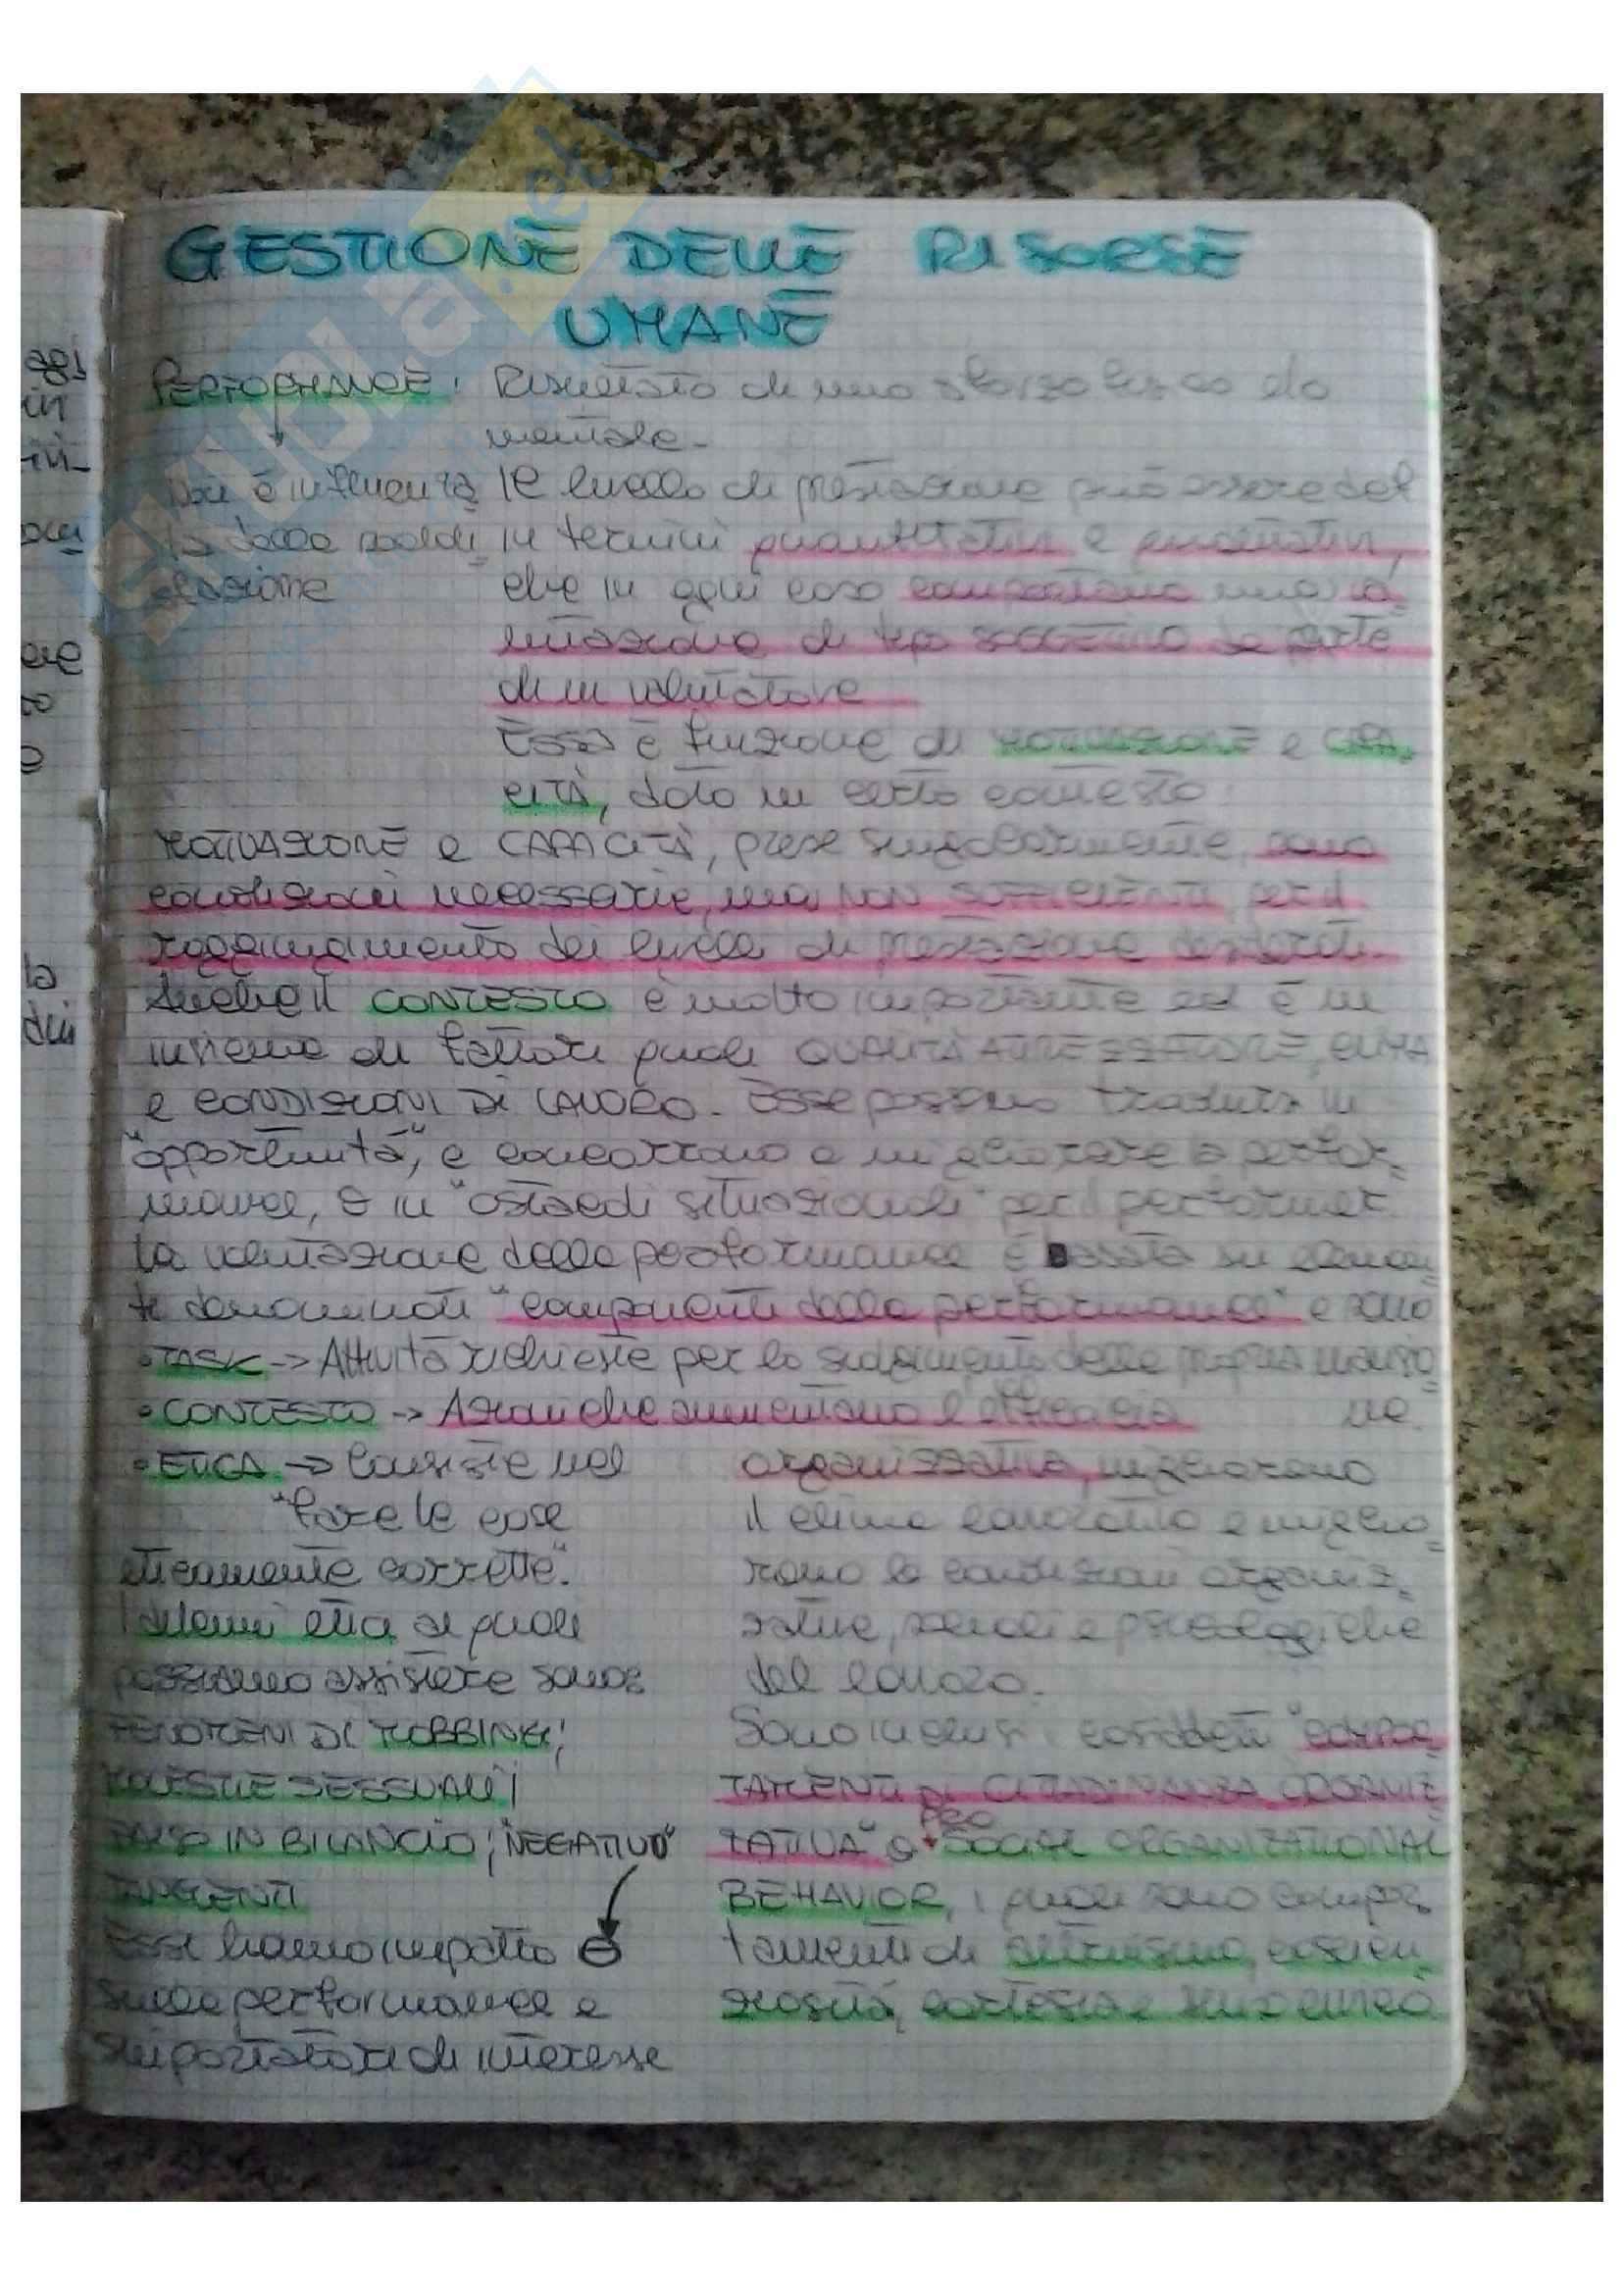 GESTIONE DELLE RISORSE
UMANE
PERFORMANCE: Risultato di uno sforzo fisico e/o
mentale.
Non è influenza
ta dalla soddi
sfazione
Il livello di prestazione può essere del
in termini quantitativi e qualitativi,
che in ogni caso comportano una va
lutazione di tipo soggettivo da parte
di un valutatore
Essa è funzione di MOTIVAZIONE e CAPA
CITÀ, dato un certo contesto.
MOTIVAZIONE e CAPACITÀ, prese singolarmente, sono
condizioni necessarie, ma NON SUFFICIENTI, per il
raggiungimento dei livelli di prestazione desiderati.
Anche il CONTESTO è molto importante ed è un
insieme di fattori quali QUALITÀ ATTREZZATURE, CLIMA
e CONDIZIONI DI LAVORO. Esse possono tradursi in
"opportunità", e concorrono a migliorare la perfor=
mance, o in "ostacoli situazionali" per il performer.
La valutazione della performance è basata su elemen=
ti denominati "componenti della performance" e sono
• TASK -> Attività richieste per lo svolgimento della propria mansio=
ne.
• CONTESTO -> Azioni che aumentano l'efficacia
organizzativa, migliorano
il clima lavorativo e miglio=
rano le condizioni organiz=
zative, sociali e psicologiche
del lavoro.
Sono inclusi i cosiddetti "COMPOR=
TAMENTI DI CITTADINANZA ORGANIZ=
ZATIVA" o PRO SOCIAL ORGANIZATIONAL
BEHAVIOR, i quali sono compor=
tamenti di altruismo, coscien
ziosità, cortesia e senso civico
• ETICA -> Consiste nel
"fare le cose
eticamente corrette".
I dilemmi etici ai quali
possiamo assistere sono:
FENOMENI DI MOBBING;
MOLESTIE SESSUALI;
FALSO IN BILANCIO; "NEGATIVO"
TANGENTI
Essi hanno impatto ⊖
sulla performance e
sui portatori di interesse
agi
in
la
SKUOLA.net